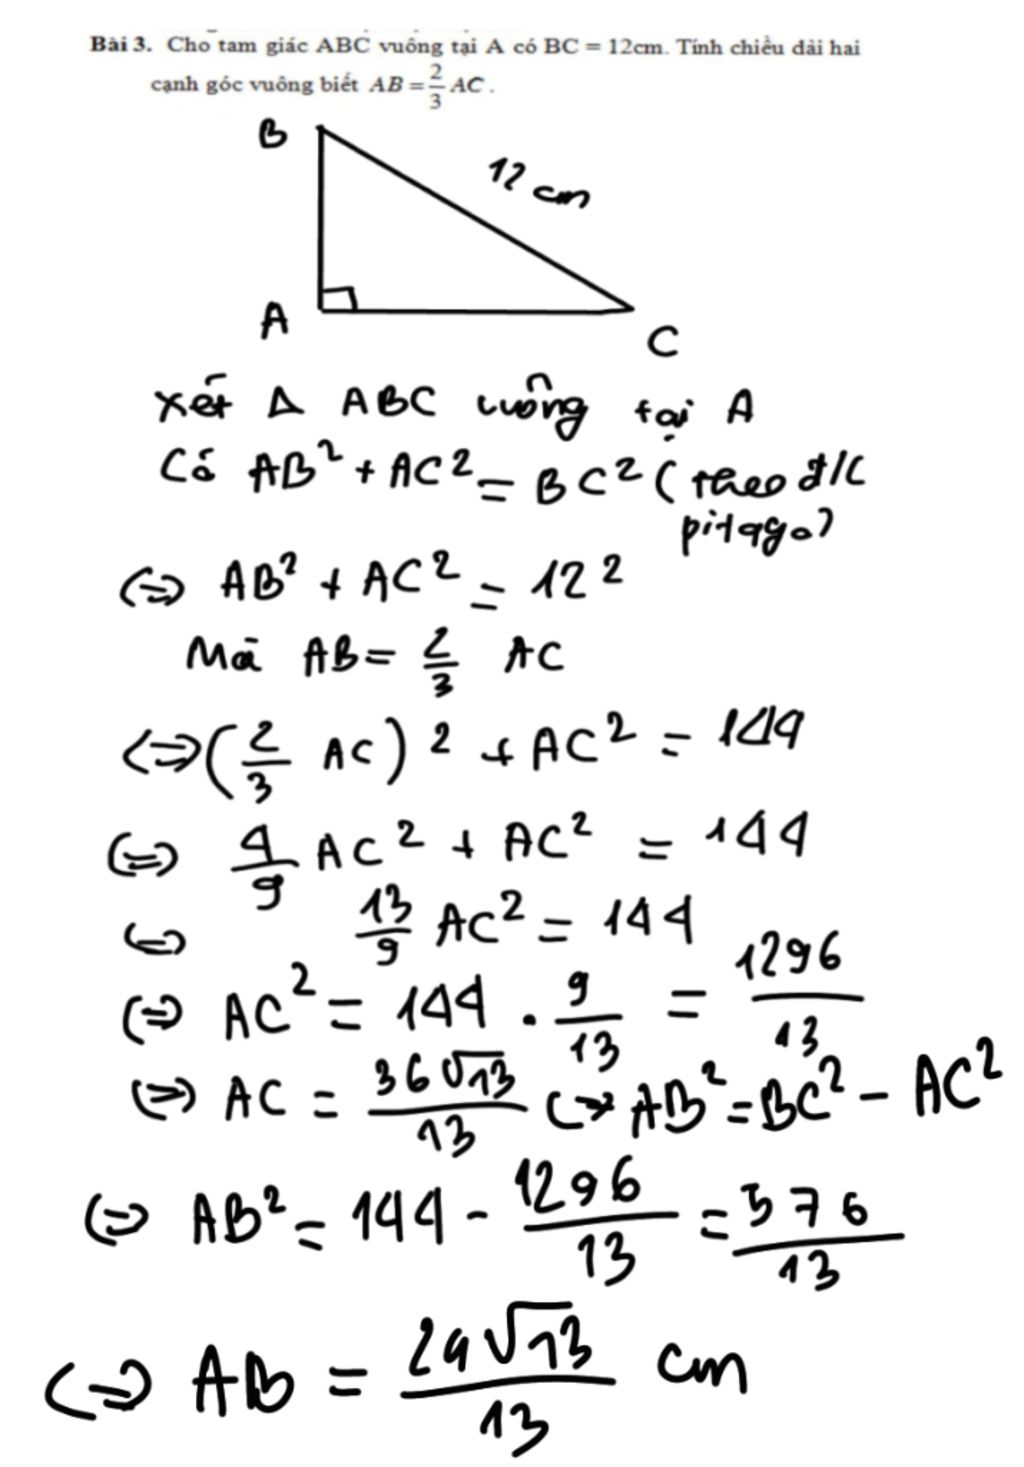 Bài 3. Cho tam giác ABC vuông tại A có BC = 12cm. Tính chiều dài hai
cạnh góc vuông biết AB = 2/3 AC.
B
12 cm
A
C
Xét Δ ABC vuông tại A
Có AB² + AC² = BC² (theo đ/l
pitago)
⇔ AB² + AC² = 12²
Mà AB = 2/3 AC
⇔ (2/3 AC)² + AC² = 144
⇔ 4/9 AC² + AC² = 144
⇔ 13/9 AC² = 144
⇔ AC² = 144 . 9/13 = 1296/13
⇔ AC = 36√13/13 ⇔ AB² = BC² - AC²
⇔ AB² = 144 - 1296/13 = 576/13
⇔ AB = 24√13/13 cm